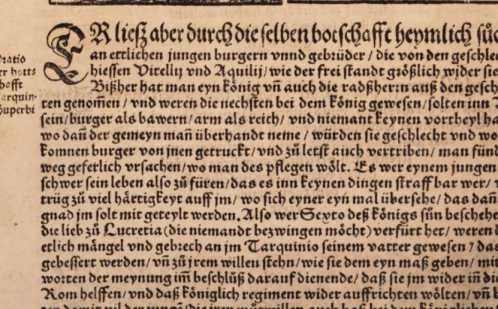 ER ließ aber durch die selben botschafft heymlich sůc
an ettlichen jungen burgern vnnd gebrüder / die von den geschle
hiessen Vitellij vnd Aquilij / wie der frei standt größlich wider sie
Bißher hat man eyn könig vñ auch die radßherrn auß den gesch
ten genomen / vnd weren die nechsten bei dem König gewesen / solten inn
sein / burger als bawern / arm als reich / vnd niemant keynen vortheyl ha
wo dañ der gemeyn mañ überhandt neme / würden sie geschlecht vnd wo
komnen burger von jnen getruckt / vnd zů letst auch vertriben / man fünd
weg geferlich vrsachen / wo man des pflegen wölt. Es wer eynem jungen
schwer sein leben also zů füren / das es inn keynen dingen straffbar wer /
trüg zů viel härtigkeyt auff jm / wo sich eyner eyn mal übersehe / das dañ
gnad jm solt mit geteylt werden. Also wer Sexto deß königs sůn beschehe
die lieb zů Lucretia (die niemandt bezwingen möcht) verfürt het / weren d
etlich mängel vnd gebrech an jm Tarquinio seinem vatter gewesen / das
gebessert werden / vñ zů jrem willen stehn / wie sie dem eyn maß geben / mit
worten der meynung im beschlůß darauf dienende / daß sie jm wider in die
Rom helffen / vnd daß königlich regiment wider auffrichten wölten / vñ
oratio
er botts
hafft
arquin-
Superbi